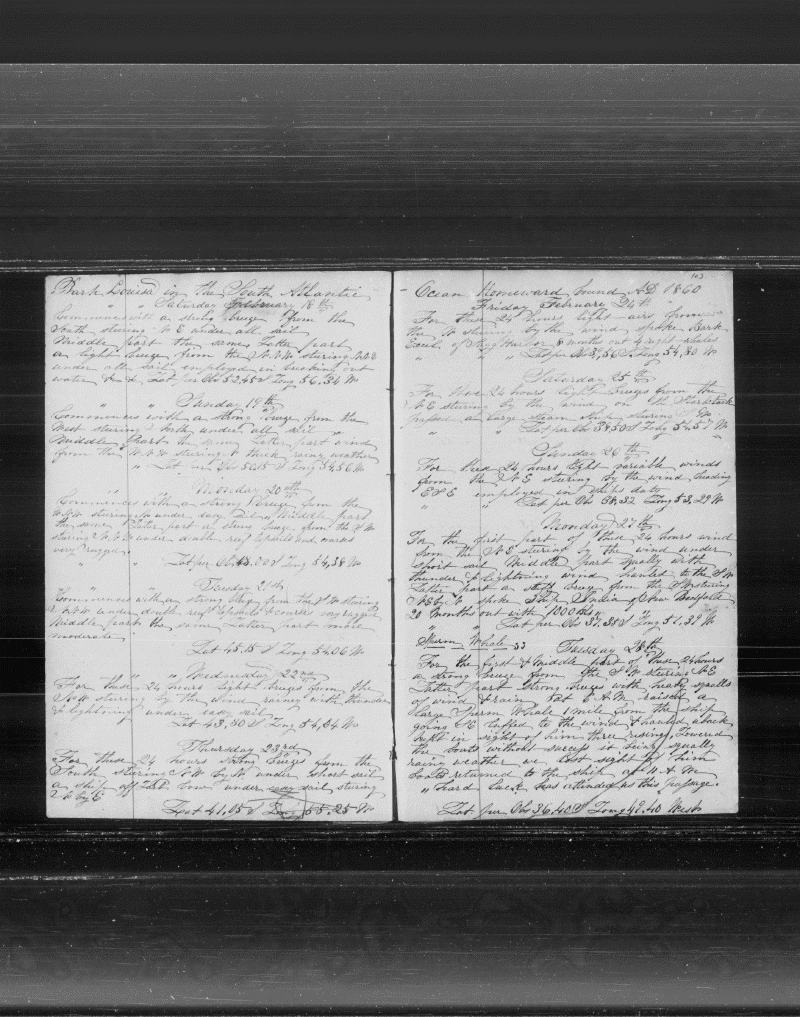 Bark Louisa in the South Atlantic
" " Saturday February 18th
Commences with a strong breeze from the
South stearing N E under all sail
Middle part the same Latter part
a light breeze from the N.N.W stearing N.N.E
under all sail employed in breaking out
water &c &c Lat per Obs 52,45 S Long 56.34 W
" " Sunday 19th
Commences with a strong Breeze from the
West stearing North under all sail
Middle part the same Latter part wind
from the N.N.W stearing thick rainy weather
" Lat per Obs S Long 54,56 W
" 20th
Commences with a strong Breeze from the
N.N.W stearing under Sail Middle part
the same Latter part a strong breeze from the S W
stearing N.N.E under double reef topsails and
very rugged.
" " Lat per Obs S Long 54,38 W
Tuesday 21st
Commences with a strong from the S W stearing
N.N.E under double reef topsails & courses very rugged
Middle part the same Latter part more
moderate
Lat 45.15 S Long 54,06 W
" " Wednesday 22nd
For these 24 hours light breezes from the
stearing by the wind rainey with thunder
& lightning under easy sail
Lat 43,30 S Long 54,24 W
Thursday 23rd
For these 24 hours strong breezes from the
South stearing N by under short sail
a ship off Lee bow under easy sail stearing
N by E
Lat 41,05 S Long 55,25 W
103
Ocean Homeward bound AD 1860
Friday Februare 24th "
For these 24 hours light airs from
the N stearing by the wind spoke Bark
of Sag Harbor 8 months out 4 right whales
" " " Lat per Obs S Long 54,30 W
Saturday 25th
For these 24 hours light breezes from the
N E stearing by the wind on
passed a large steam ship stearing S W
" " Lat per Obs 38,50 S Long 54,57 W
Sunday 26th
For these 24 hours light variable winds
from the N E stearing by the wind heading
E S E employed in ships duty
" Lat per Obs 38,32 Long 53,29 W
Monday 27th
For the first part of these 24 hours wind
from the N E stearing by the wind under
short sail Middle part squally with
thunder & lightning wind hauled to the S W
Latter part a stiff breeze from the stearing
N E by N spoke Ship of New Bedford
20 months out with 1000 bbls
" Lat per Obs 37.38 S Long 51.39 W
Sperm Whale 33 Tuesday 28th
For the first & Middle part of these 24 hours
a strong breeze from the S W stearing N E
Latter part strong breezes with heavy squalls
of wind & rain Sat 8 A M raised a
large Sperm Whale 1 mile from the ship
going luffed to the wind & hauled aback
kept in sight of him three risings, Lowered
the boats without success it being squally
rainy weather we lost sight of him
boats returned to the ship at 11 A M
" hard luck has attended us this passage.
Lat per Obs 36.40 S Long 49.40 West